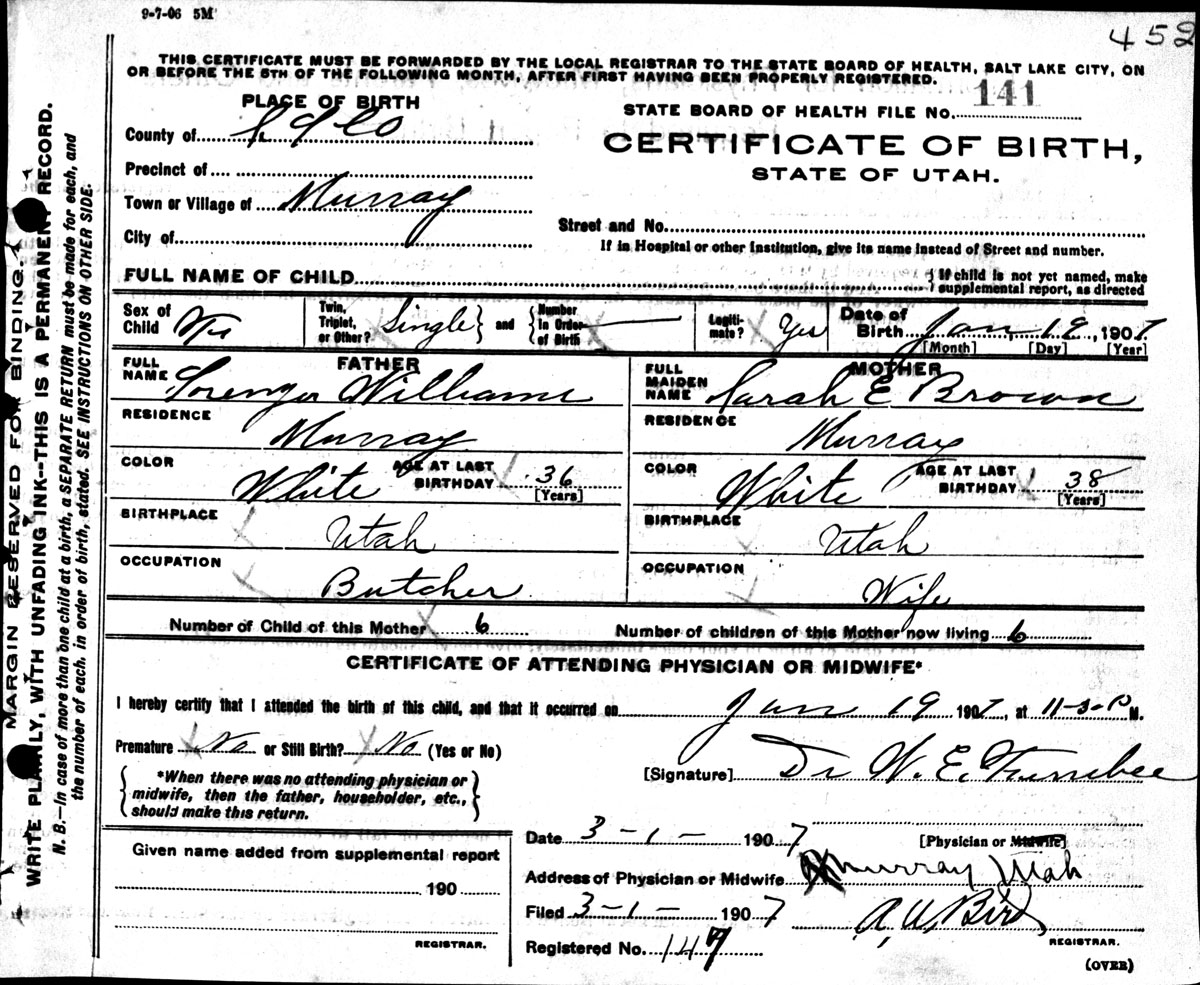 9-7-06 5M
452
THIS CERTIFICATE MUST BE FORWARDED BY THE LOCAL REGISTRAR TO THE STATE BOARD OF HEALTH, SALT LAKE CITY, ON
OR BEFORE THE 5TH OF THE FOLLOWING MONTH, AFTER FIRST HAVING BEEN PROPERLY REGISTERED.
PLACE OF BIRTH
STATE BOARD OF HEALTH FILE No. 141
County of
CERTIFICATE OF BIRTH,
STATE OF UTAH.
Precinct of
Town or Village of Murray
Street and No.
City of
If in Hospital or other Institution, give its name instead of Street and number.
FULL NAME OF CHILD
{If child is not yet named, make
supplemental report, as directed
Sex of Child
Twin, Triplet, or Other? Single } and { Number In Order of Birth
Legiti-mate? Yes
Date of Birth Jan 19, 1907
[Month] [Day] [Year]
FATHER
FULL NAME Lorenzo Williams
RESIDENCE Murray
COLOR White AGE AT LAST BIRTHDAY 36
[Years]
BIRTHPLACE Utah
OCCUPATION Butcher
MOTHER
FULL MAIDEN NAME Sarah E Brown
RESIDENCE Murray
COLOR White AGE AT LAST BIRTHDAY 38
[Years]
BIRTHPLACE Utah
OCCUPATION Wife
Number of Child of this Mother 6
Number of children of this Mother now living 6
CERTIFICATE OF ATTENDING PHYSICIAN OR MIDWIFE*
I hereby certify that I attended the birth of this child, and that it occurred on Jan 19 1907, at M.
Premature No or Still Birth? No (Yes or No)
[Signature] Dr W. E.
*When there was no attending physician or
midwife, then the father, householder, etc.,
should make this return.
Date 3-1- 1907
[Physician or Midwife]
Address of Physician or Midwife Murray Utah
Filed 3-1- 1907 A. W. Bird
REGISTRAR.
Registered No. 147
(OVER)
Given name added from supplemental report
190
REGISTRAR.
MARGIN RESERVED FOR BINDING.
WRITE PLAINLY, WITH UNFADING INK--THIS IS A PERMANENT RECORD.
N. B.—In case of more than one child at a birth, a SEPARATE RETURN must be made for each, and
the number of each, in order of birth, stated. SEE INSTRUCTIONS ON OTHER SIDE.